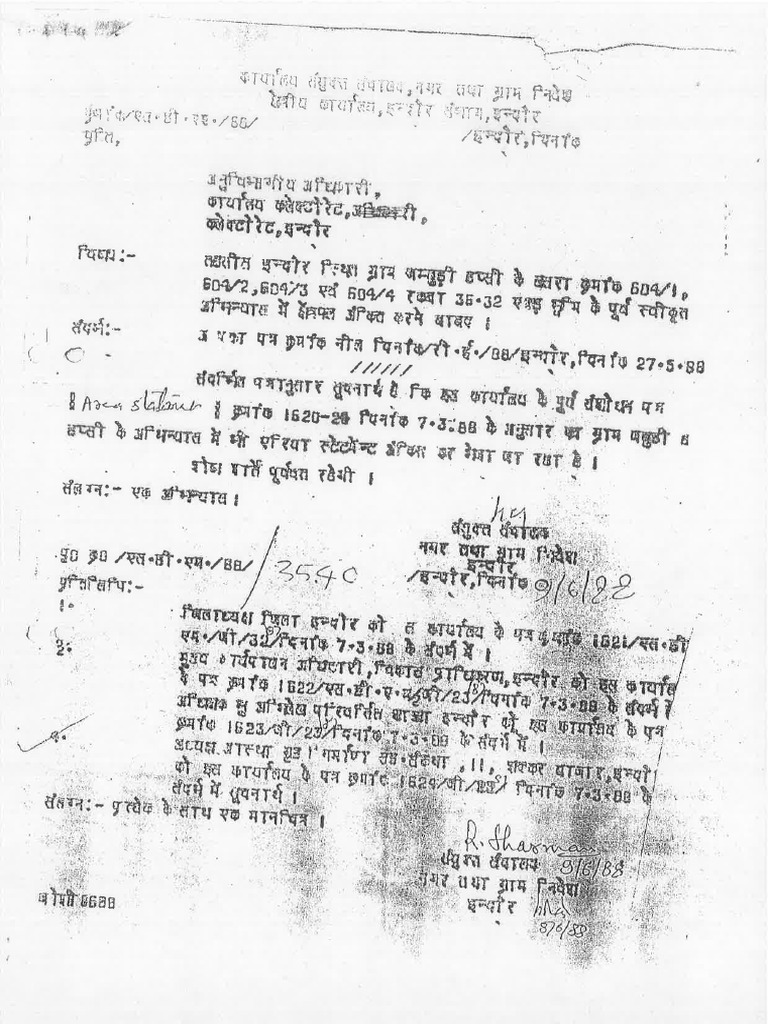 कार्यालय संयुक्त संचालक,नगर तथा ग्राम निवेश
क्षेत्रीय कार्यालय,इन्दौर संभाग,इन्दौर
क्रमांक/एल.डी.एम./88/ /इन्दौर,दिनांक
प्रति,
अनुविभागीय अधिकारी,
कार्यालय कलेक्टोरेट,
कलेक्टोरेट,इन्दौर
विषय:- तहसील इन्दौर स्थित ग्राम जम्बुड़ी हप्सी के खसरा क्रमांक 604/1,
604/2,604/3 एवं 604/4 रकबा 36.32 एकड़ भूमि के पूर्व स्वीकृत
अभिन्यास में क्षेत्रफल अंकित करने बाबद ।
संदर्भ:- आपका पत्र क्रमांक नील दिनांक/री.ई./88/इन्दौर,दिनांक 27.5.88
//////
संदर्भित पत्रानुसार सूचनार्थ है कि इस कार्यालय के पूर्व संशोधन पत्र
क्रमांक 1620-23 दिनांक 7.3.88 के अनुसार
हप्सी के अभिन्यास में भी एरिया स्टेटमेन्ट अंकित कर भेजा जा रहा है ।
Area statement
शेष शर्तें पूर्ववत रहेगी ।
संलग्न:- एक अभिन्यास ।
संयुक्त संचालक
नगर तथा ग्राम निवेश
इन्दौर
पृ0 क्र0 /एल.डी.एम./88/ 3540 /इन्दौर,दिनांक 9/6/88
प्रतिलिपि:-
1. जिलाध्यक्ष जिला इन्दौर को कार्यालय के पत्र क्रमांक 1621/एल.डी
एम./जी/32/दिनांक 7.3.88 के संदर्भ में ।
2. मुख्य कार्यपालन अधिकारी,विकास प्राधिकरण,इन्दौर को इस कार्यालय
के पत्र क्रमांक 1622/एल.डी.एम./जी/23/दिनांक 7.3.88 के संदर्भ में
अधिक्षक भू अभिलेख परिवर्तित शाखा इन्दौर को इस कार्यालय के पत्र
क्रमांक 1623/जी/23/दिनांक 7.3.88 के संदर्भ में ।
अध्यक्ष आस्था गृह निर्माण सह.संस्था ,11, शक्कर बाजार,इन्दौर
को इस कार्यालय के पत्र क्रमांक 1624/जी/23/ दिनांक 7.3.88 के
संदर्भ में सूचनार्थ ।
संलग्न:- प्रत्येक के साथ एक मानचित्र ।
R. Sharma
संयुक्त संचालक 9/6/88
नगर तथा ग्राम निवेश
इन्दौर
8/6/88
जोशी 8688